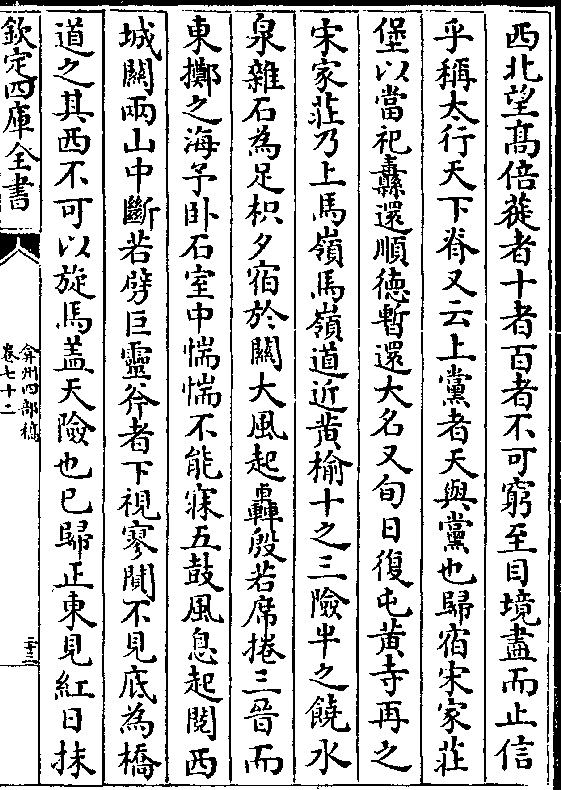 西北望髙倍蓰者十者百者不可窮至目境盡而止信
乎稱太行天下脊又云上黨者天與黨也歸宿宋家莊
堡以當祀纛還順徳暫還大名又旬日復屯黄寺再之
宋家莊乃上馬嶺馬嶺道近黄榆十之三險半之饒水
泉雜石為足枳夕宿於關大風起轟殷若席捲三晉而
東擲之海予卧石室中惴惴不能寐五鼓風息起閲西
城關兩山中斷若劈巨靈斧者下視寥閴不見底為橋
道之其西不可以旋馬盖天險也已歸正東見紅日抹
欽定四庫全書
弇州四部稿
卷七十二